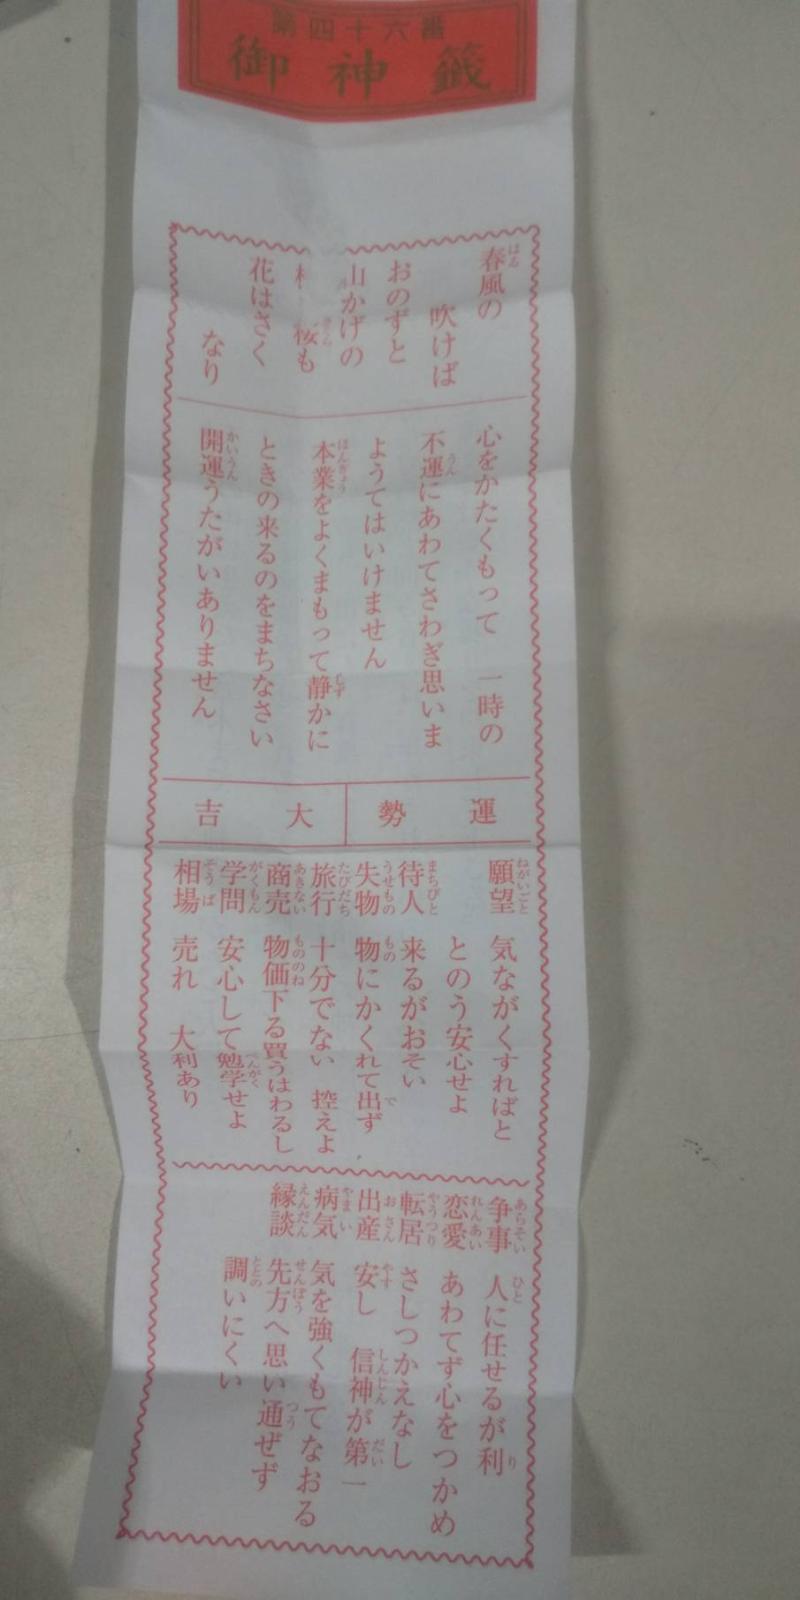 第四十六番
御神籤
春風の
吹けば
おのずと
山かげの
桜も
花はさく
なり
心をかたくもって 一時の
不運にあわてさわぎ思いま
ようてはいけません
本業をよくまもって静かに
ときの来るのをまちなさい
開運うたがいありません
運勢 大吉
願望 気ながくすればとと
とのう安心せよ
待人 来るがおそい
失物 物にかくれて出ず
旅行 十分でない 控えよ
商売 物価下る買うはわるし
学問 安心して勉学せよ
相場 売れ 大利あり
争事 人に任せるが利
恋愛 あわてず心をつかめ
転居 さしつかえなし
出産 安し 信神が第一
病気 気を強くもてなおる
縁談 先方へ思い通ぜず
調いにくい